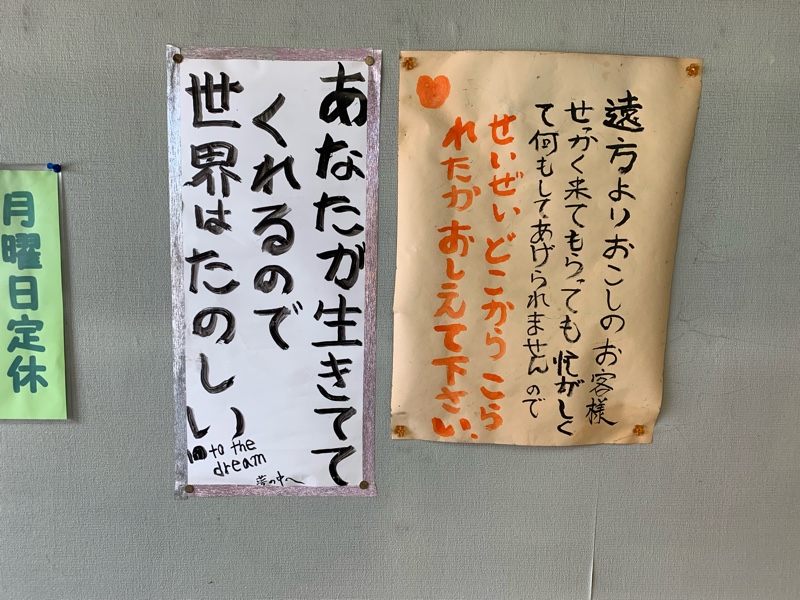 遠方よりおこしのお客様
せっかく来てもらっても忙がしく
て何もしてあげられませんので
せいぜいどこからこら
れたかおしえて下さい、
あなたが生きてて
くれるので
世界はたのしい
to the
dream
夢の中へ
月曜日定休